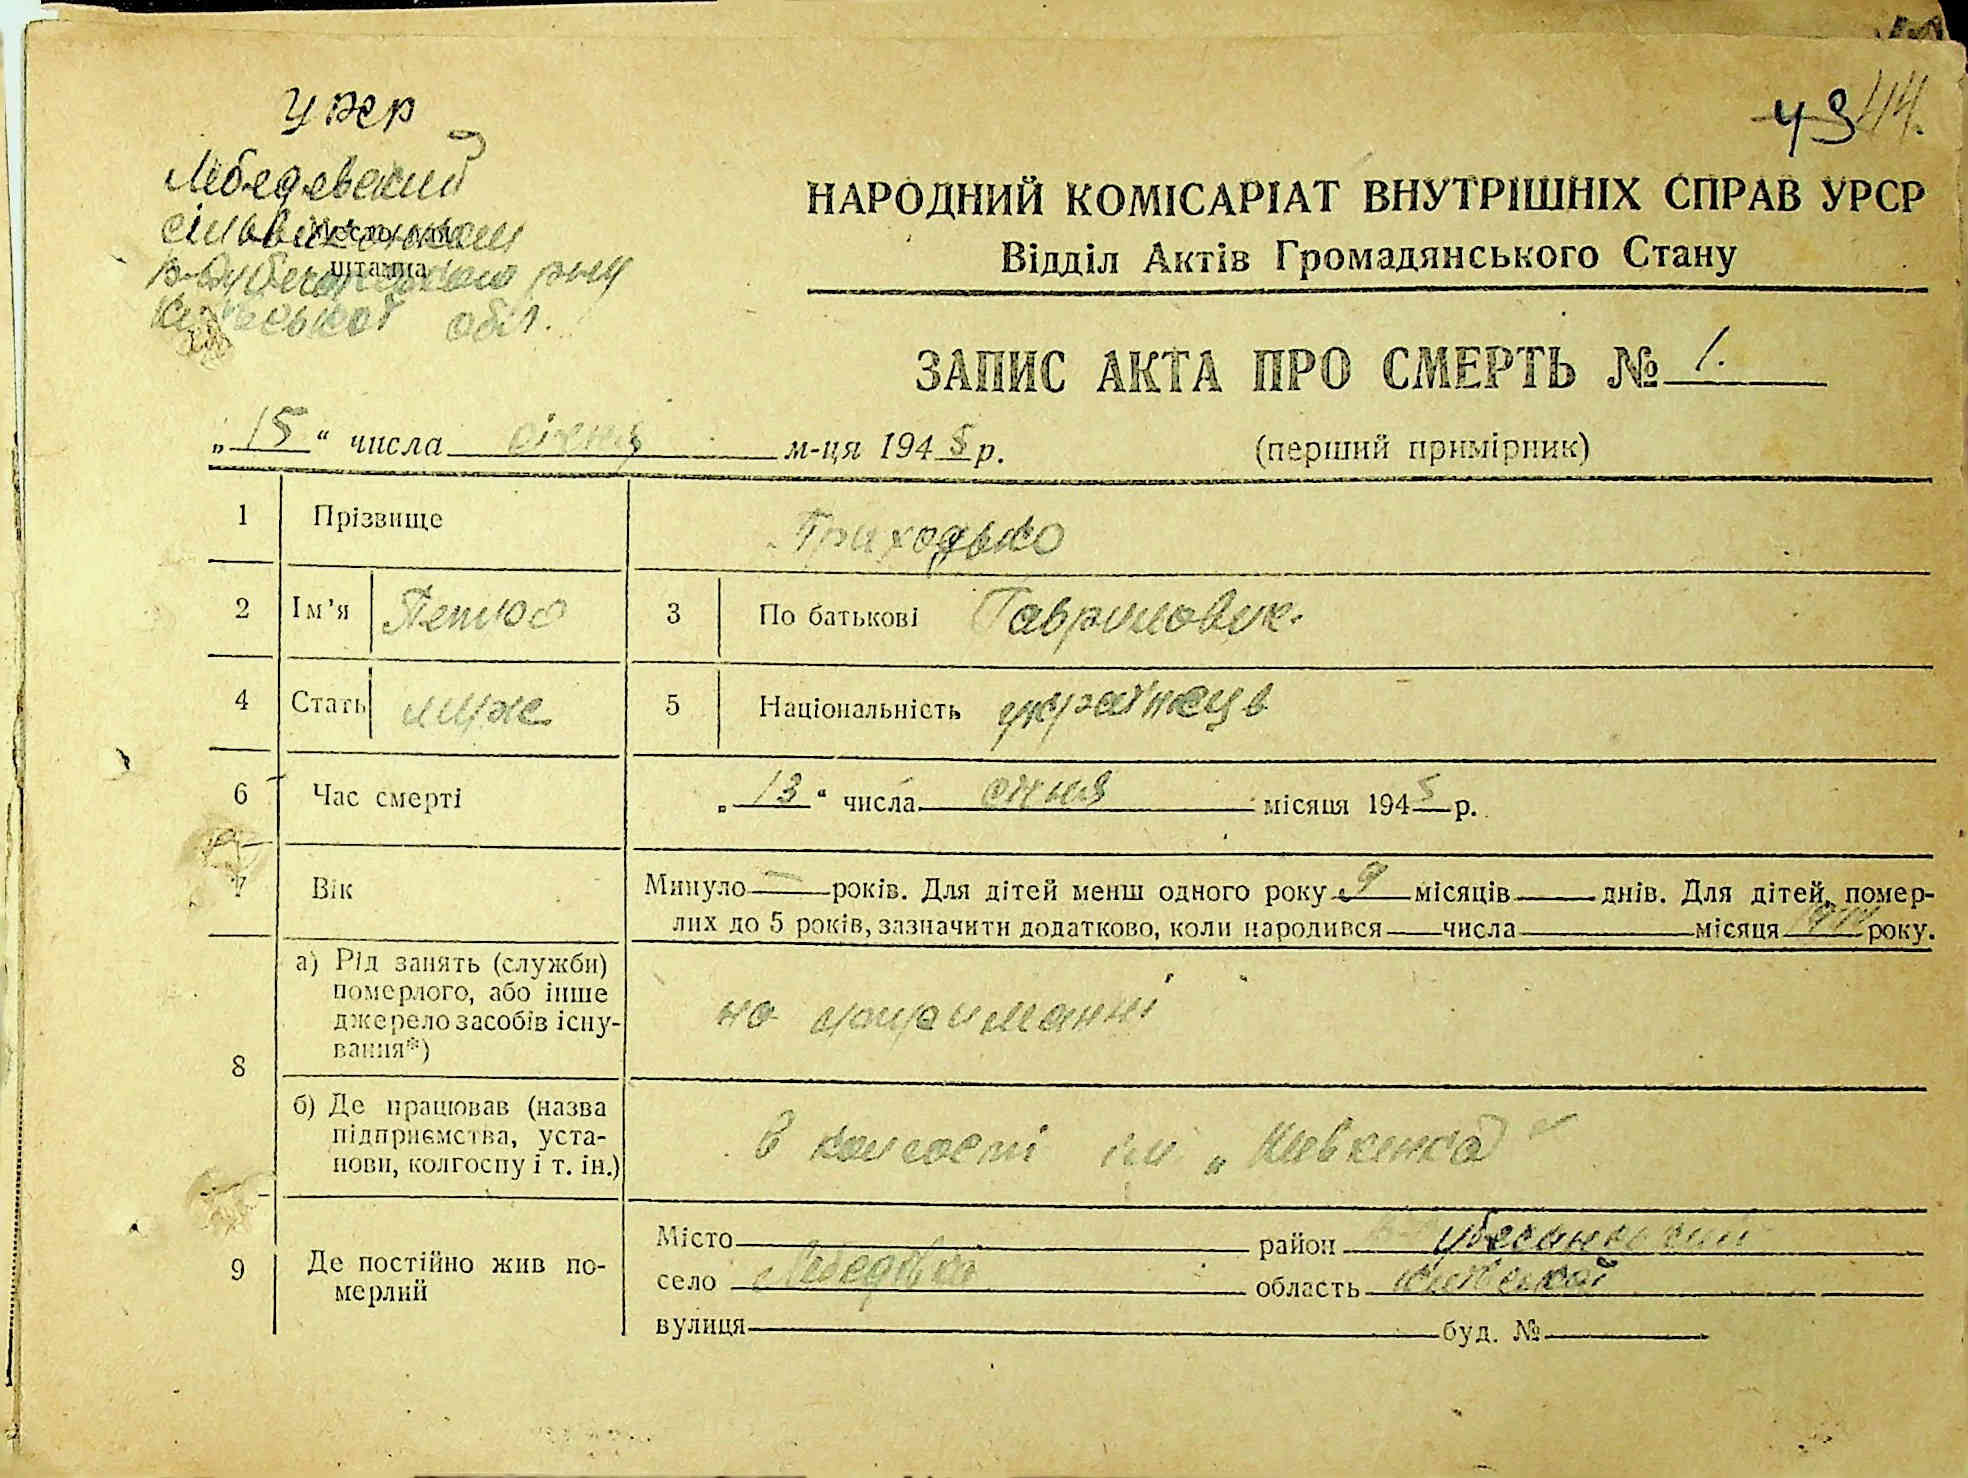 УРСР
43 44.
Лебедевский
сільвиконком
Місце для
штампа
В-Дубечанського р-ну
Київської обл.
НАРОДНИЙ КОМІСАРІАТ ВНУТРІШНІХ СПРАВ УРСР
Відділ Актів Громадянського Стану
ЗАПИС АКТА ПРО СМЕРТЬ № 1.
„ 15 “ числа січня м-ця 1945 р. (перший примірник)
1 Прізвище Приходько
2 Ім'я Петро 3 По батькові Гаврилович.
4 Стать муж 5 Національність українець
6 Час смерті „ 13 “ числа січня місяця 1945 р.
7 Вік Минуло — років. Для дітей менш одного року 9 місяців днів. Для дітей, помер-
лих до 5 років, зазначити додатково, коли народився числа місяця 1944 року.
8 а) Рід занять (служби)
померлого, або інше
джерело засобів існу-
вання*)
на утриманні
б) Де працював (назва
підприємства, уста-
нови, колгоспу і т. ін.)
в колгоспі ім „Шевченка"
9 Де постійно жив по-
мерлий
Місто район В-Дубечанський
село Лебедівка область Київської
вулиця буд. №